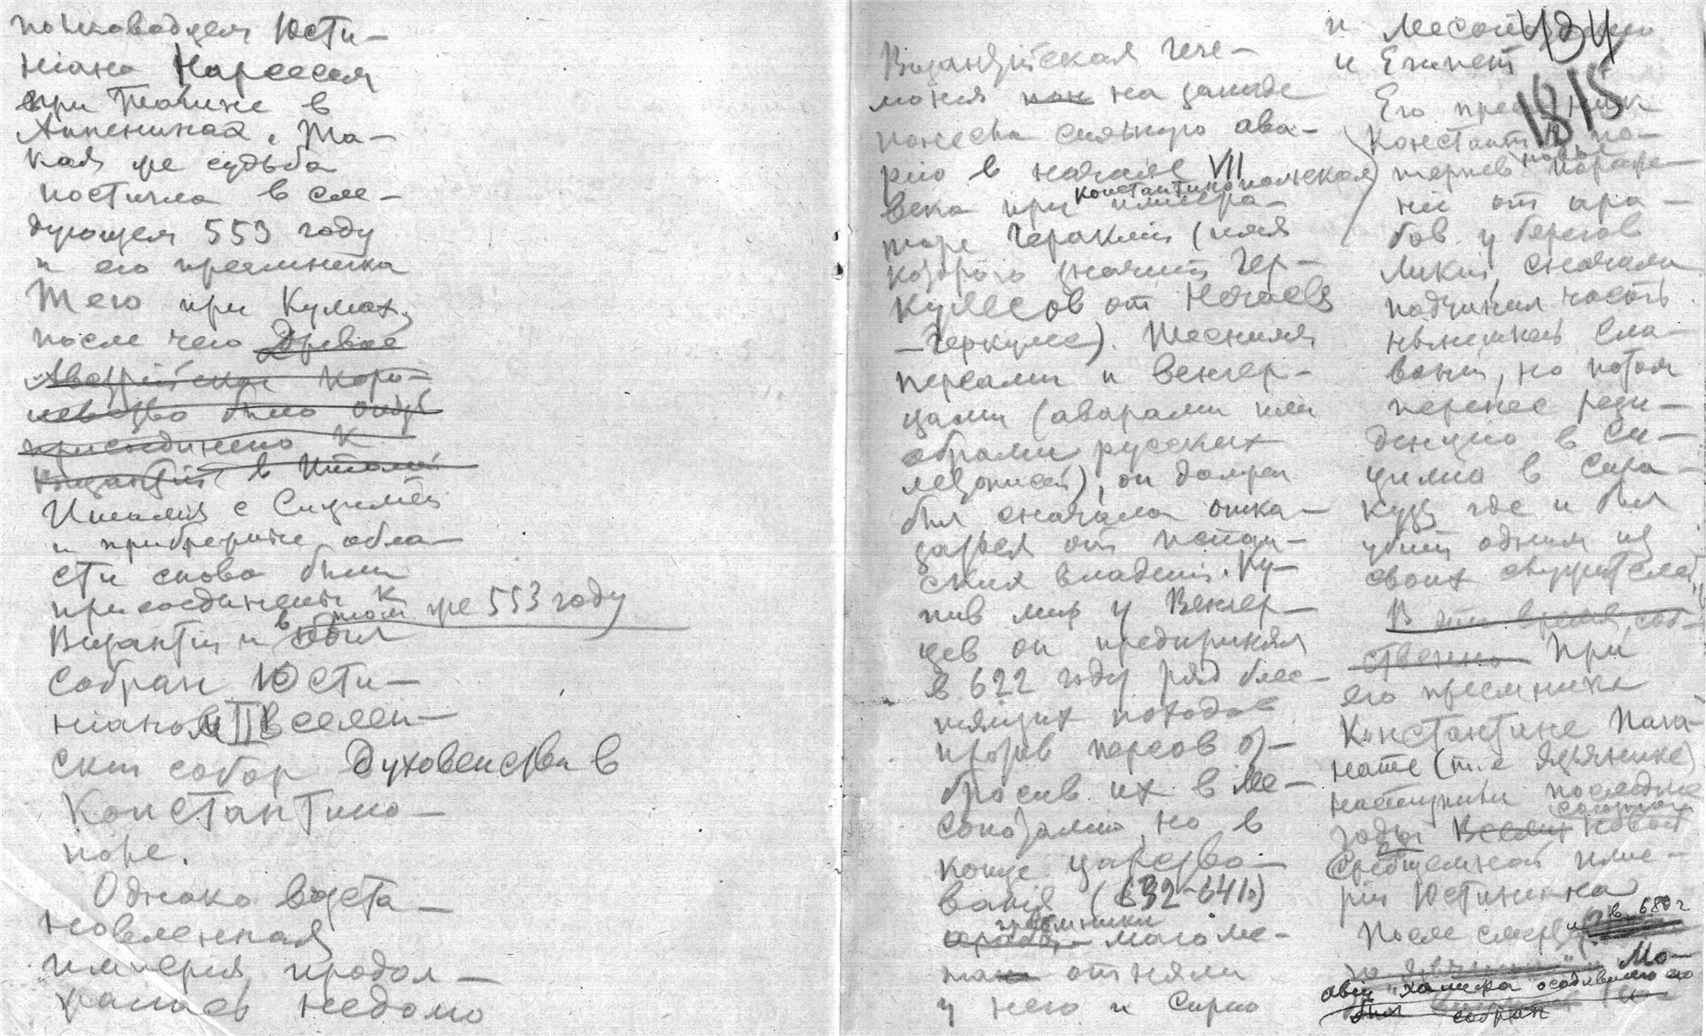 полководцем Юсти-
ніана Нарсесом
при Тагине в
Аппенинах. Та-
кая же судьба
постигла в сле-
дующем 553 году
и его преемника
Тею при Кумах,
после чего Древое
королевство было опять
присоединено к
Византии в Италии
Италия с Сицилией
и прибрежные обла-
сти снова были
присоединены к
Византии и в том же 553 году
был
собран Юсти-
ніаном II Вселен-
скій собор Духовенства в
Константино-
поле.
Однако возста-
новленная
имперія продол-
жалась недолго
Византійская геге-
монія на западе
понесла сильную ава-
рію в начале VII
века при константинопольская импера-
торе Гераклии (имя
которого значит Гер-
кулесов от
Геркулес). Тесним
персами и венгер-
цами (аварами или
обрами русских
летописей), он должен
был сначала отка-
заться от испан-
ских владений. Ку-
пив мир у Венгер-
цев он предпринял
в 622 году ряд блес-
тящих походов
против персов от-
бросив их в Ме-
сопотамию, но в
конце царство-
вания (632-641г)
преемники магоме-
та отняли
у него и Сирию
и Месопотамию
и Египет
134
1815
Его преемник
Констант II по-
терпев пораже-
ние от ара-
бов у берегов
Ликии, сначала
подчинил часть
нынешней Сла-
вонии, но потом
перенес рези-
денцию в Си-
цилию в Сира-
кузы где и был
убит одним из
своих служителей
В это время, соб-
ственно При
его преемнике
Константине Пого-
нате (т.е. Язычнике)
наступили последние
годы новой
Средиземной импе-
рии Юстиниана
После смерти и в 680 г
Мо-
авии "халифа осадившего его
был собран